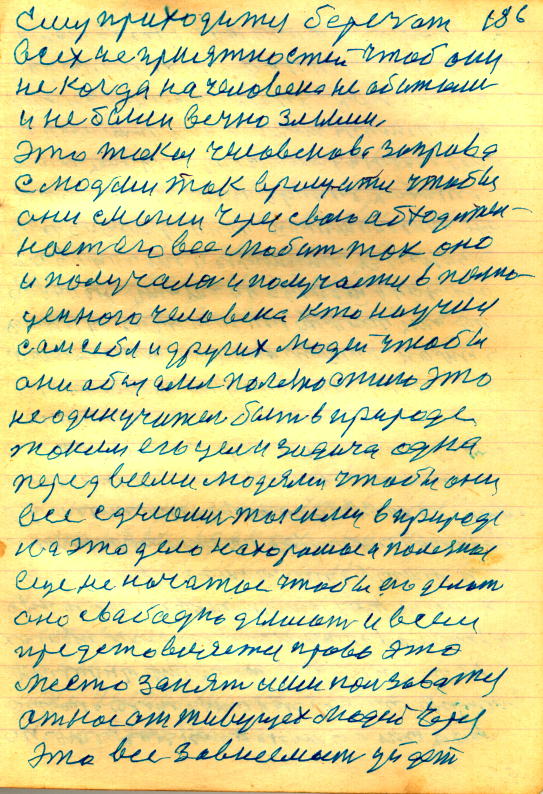 ему приходится беречот 186
всех не приятностей чтоб они
не когда на человека не абижали
и не были вечно злыми
это такая человекова заправа
с людьми так вращятся чтобы
они смогли через свою абходитель-
ность его все любит так оно
и получалося и получается в полно-
ценного человека кто научил
сам себя и других людей чтобы
они абщялися полезностию это
не один учител быт в природе
таким его цел и задача одна
перед всеми людями чтобы они
все сделалис такими в природе
на это дело на хорошое а полезное
еще не начатое чтобы его делат
оно свабадно дышат и всем
предстовляется право это
место занят и им ползоватся
а тное от живущех людей через
это все зависемост уйдет